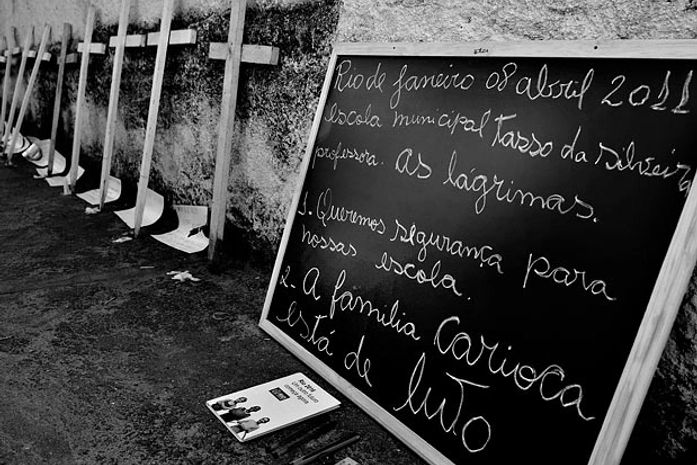 Rio de Janeiro 08 abril 2011
escola municipal Tasso da silveira
professora. As lágrimas.
1. Queremos segurança para
nossas escola.
2. A família Carioca
está de luto
Rio 2016